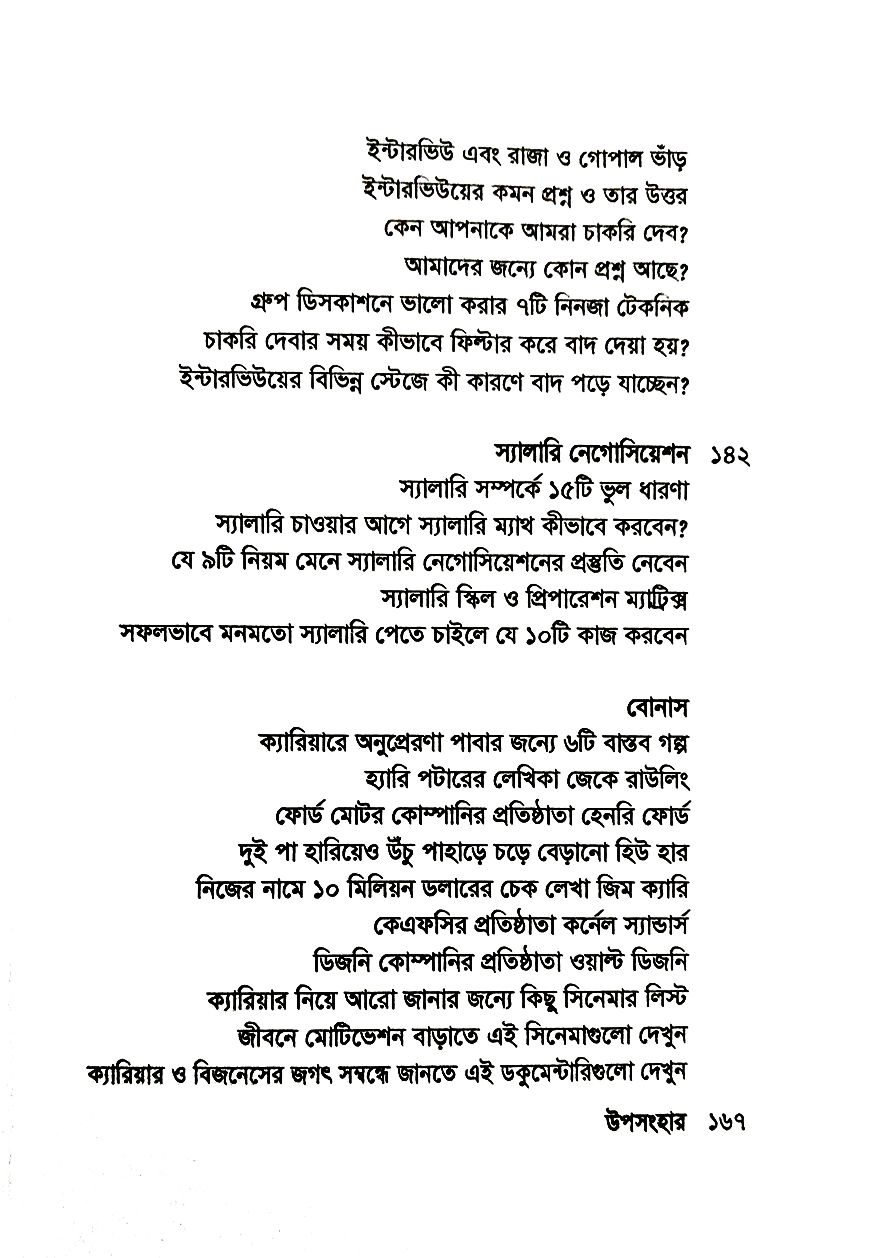 ইন্টারভিউ এবং রাজা ও গোপাল ভাঁড়
ইন্টারভিউয়ের কমন প্রশ্ন ও তার উত্তর
কেন আপনাকে আমরা চাকরি দেব?
আমাদের জন্যে কোন প্রশ্ন আছে?
গ্রুপ ডিসকাশনে ভালো করার ৭টি নিনজা টেকনিক
চাকরি দেবার সময় কীভাবে ফিল্টার করে বাদ দেয়া হয়?
ইন্টারভিউয়ের বিভিন্ন স্টেজে কী কারণে বাদ পড়ে যাচ্ছেন?
স্যালারি নেগোসিয়েশন ১৪২
স্যালারি সম্পর্কে ১৫টি ভুল ধারণা
স্যালারি চাওয়ার আগে স্যালারি ম্যাথ কীভাবে করবেন?
যে ৯টি নিয়ম মেনে স্যালারি নেগোসিয়েশনের প্রস্তুতি নেবেন
স্যালারি স্কিল ও প্রিপারেশন ম্যাট্রিক্স
সফলভাবে মনমতো স্যালারি পেতে চাইলে যে ১০টি কাজ করবেন
বোনাস
ক্যারিয়ারে অনুপ্রেরণা পাবার জন্যে ৬টি বাস্তব গল্প
হ্যারি পটারের লেখিকা জেকে রাউলিং
ফোর্ড মোটর কোম্পানির প্রতিষ্ঠাতা হেনরি ফোর্ড
দুই পা হারিয়েও উঁচু পাহাড়ে চড়ে বেড়ানো হিউ হার
নিজের নামে ১০ মিলিয়ন ডলারের চেক লেখা জিম ক্যারি
কেএফসির প্রতিষ্ঠাতা কর্নেল স্যান্ডার্স
ডিজনি কোম্পানির প্রতিষ্ঠাতা ওয়াল্ট ডিজনি
ক্যারিয়ার নিয়ে আরো জানার জন্যে কিছু সিনেমার লিস্ট
জীবনে মোটিভেশন বাড়াতে এই সিনেমাগুলো দেখুন
ক্যারিয়ার ও বিজনেসের জগৎ সম্বন্ধে জানতে এই ডকুমেন্টারিগুলো দেখুন
উপসংহার ১৬৭